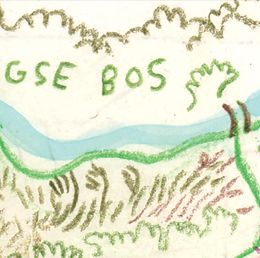 GSE BOS